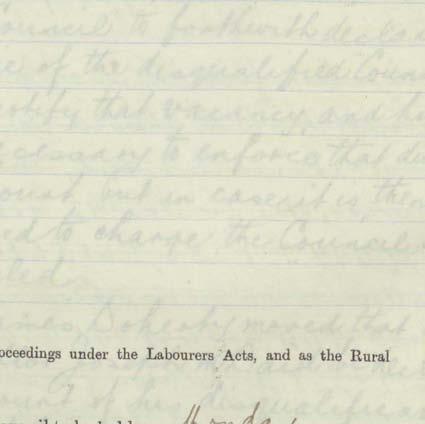 ouncil to forthwith decla
e of the disqualified Coun
notify that vacancy and ho
ecessary to enforce that d
ourt but in case it is then
ed to change the Council
led.
ames Doherty moved that
oceedings under the Labourers Acts, and as the Rural
ount of his disqualific
Monda